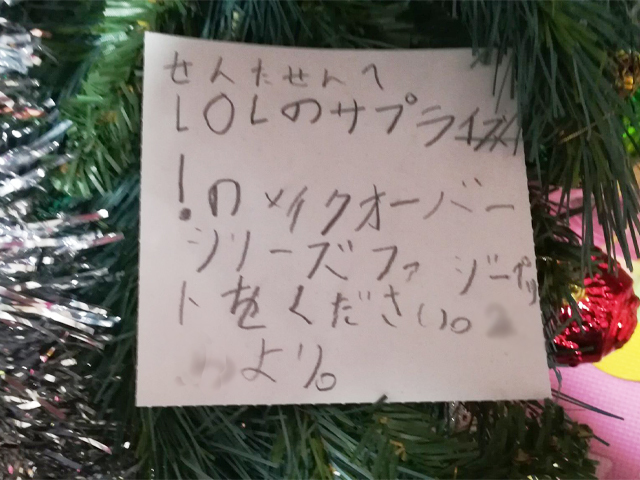 せんたせんへ
LOLのサプライズ
!のメイクオーバー
シリーズファジーペッ
トをください。
より。